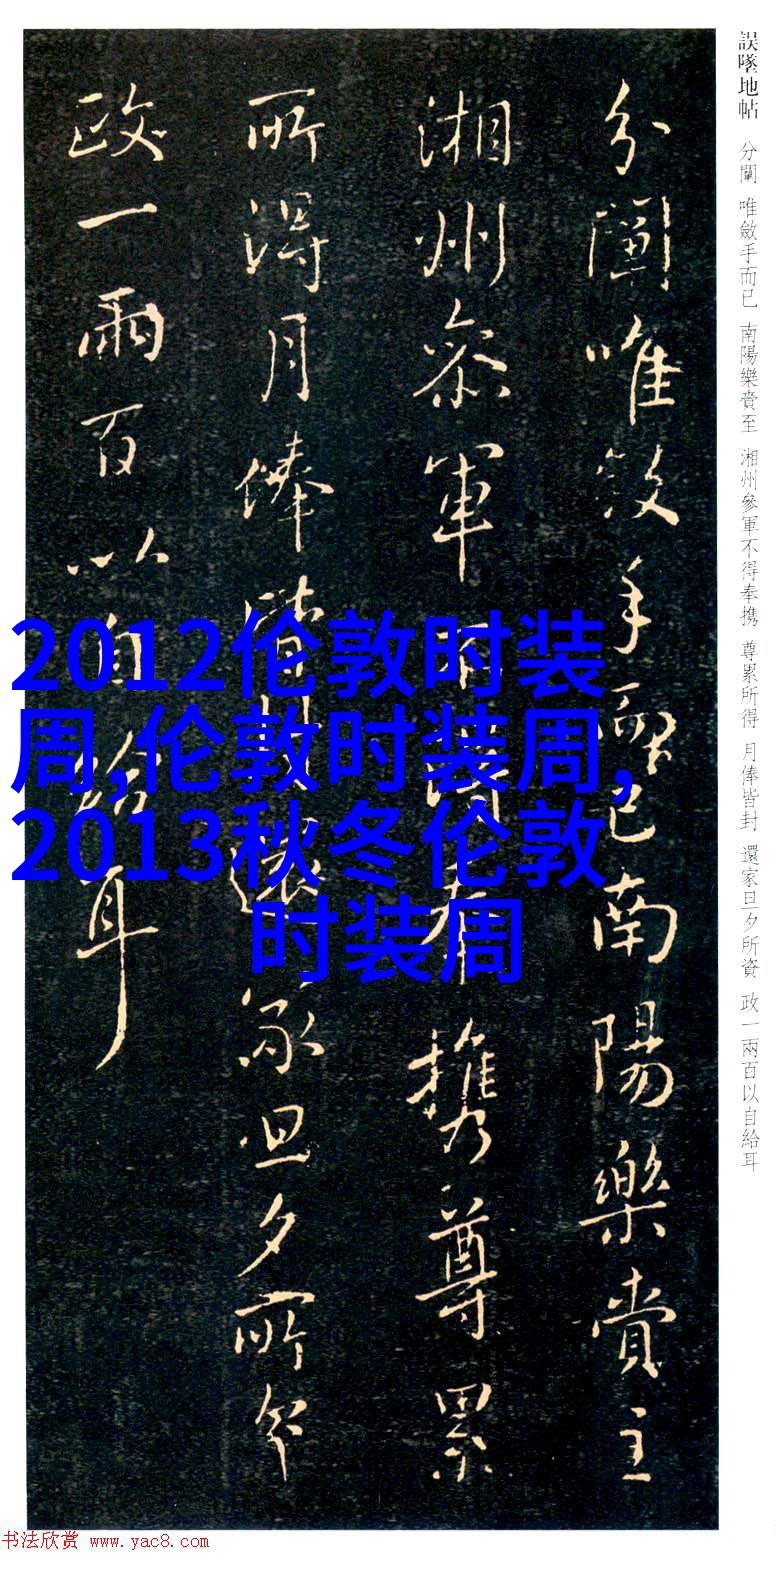 誤墜地帖 分闡 唯斂手而已 南陽樂賁至 湘州參軍不得奉携 尊累所得 月俸皆封 還家旦夕所資 政一兩百以自給耳
分闡唯斂手而已南陽樂賁至
湘州參軍不得奉携尊累
所得月俸皆封還家旦夕所資
政一兩百以自給耳
2012伦敦时装
周,伦敦时装周,
2013秋冬伦敦
时装周
书法欣赏 www.yac8.com